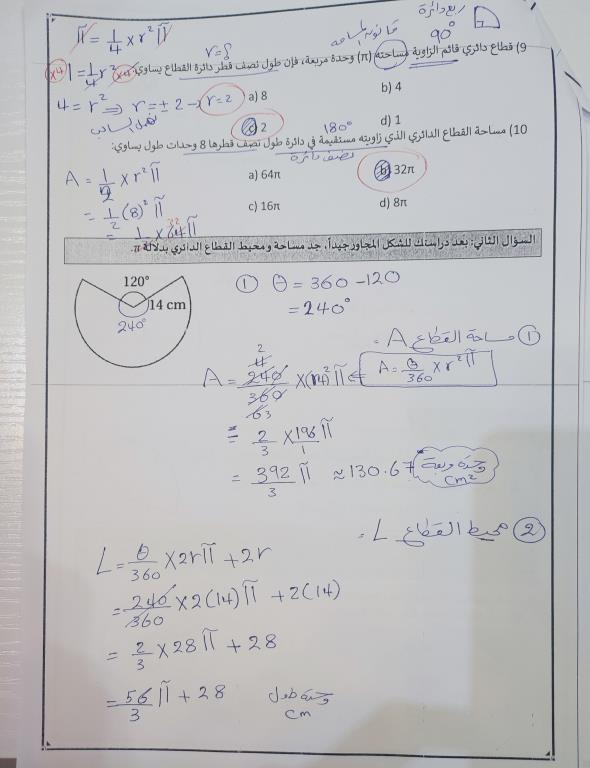 ربع دائرة
قانون المساحة
90°
π = 1/4 × r² π
r = ?
9) قطاع دائري قائم الزاوية مساحته (π) وحدة مربعة، فإن طول نصف قطر دائرة القطاع يساوي:
(×4) 1 = 1/4 r² (×4)
4 = r² ⇒ r = ± 2 → r = 2
a) 8
b) 4
c) 2
d) 1
180°
10) مساحة القطاع الدائري الذي زاويته مستقيمة في دائرة طول نصف قطرها 8 وحدات طول يساوي:
نصف دائرة
A = 1/2 × r² π
a) 64π
b) 32π
= 1/2 (8)² π
c) 16π
d) 8π
= 1/2 × 64 π
32
السؤال الثاني: بعد دراستك للشكل المجاور جيداً، جد مساحة ومحيط القطاع الدائري بدلالة π.
120°
14 cm
240°
① θ = 360 − 120
= 240°
① مساحة القطاع A =
A = θ/360 × r² π
A = 240/360 × (14)² π ⇐
2
4
6
3
= 2/3 × 196/1 π
= 392/3 π ≈ 130.67
وحدة مربعة
cm²
② محيط القطاع L =
L = θ/360 × 2rπ + 2r
= 240/360 × 2(14)π + 2(14)
= 2/3 × 28π + 28
= 56/3 π + 28
وحدة طول
cm